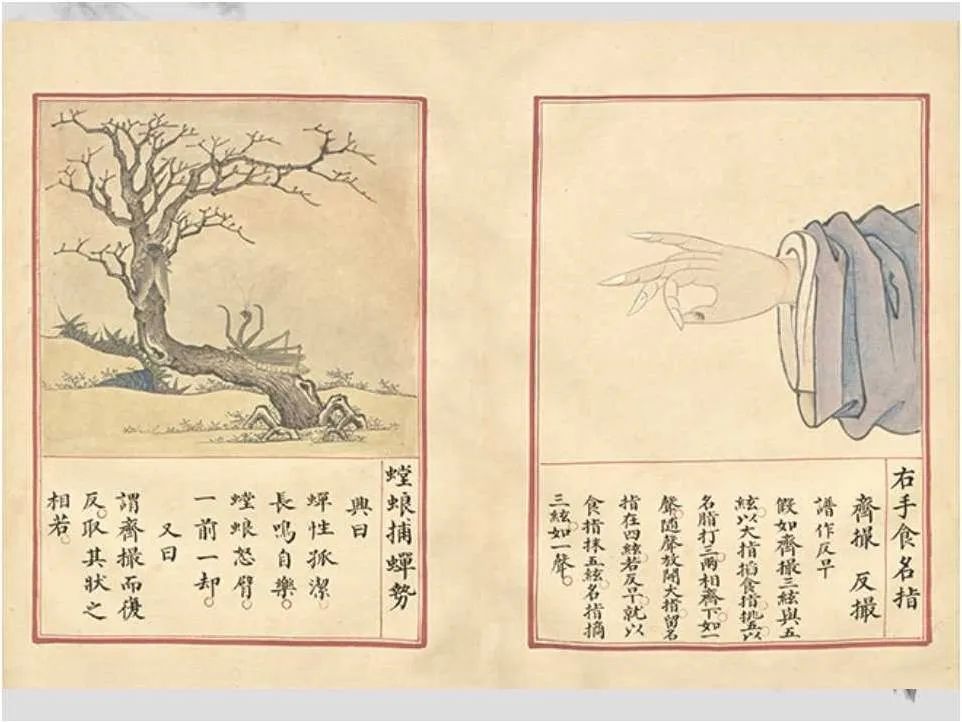 右手食名指
齊撮 反撮
譜作反早
假如齊撮三絃與五
絃。以大指掐食指挑五。以
名指打三。兩相齊下如一
聲。隨聲放開大指。留名
指在四絃。若反早。就以
食指抹五絃。名指摘
三絃。如一聲。
螳螂捕蟬勢
興曰
蟬性孤潔。
長鳴自樂。
螳螂怒臂。
一前一却。
又曰
謂齊撮而復
反。取其狀之
相若。